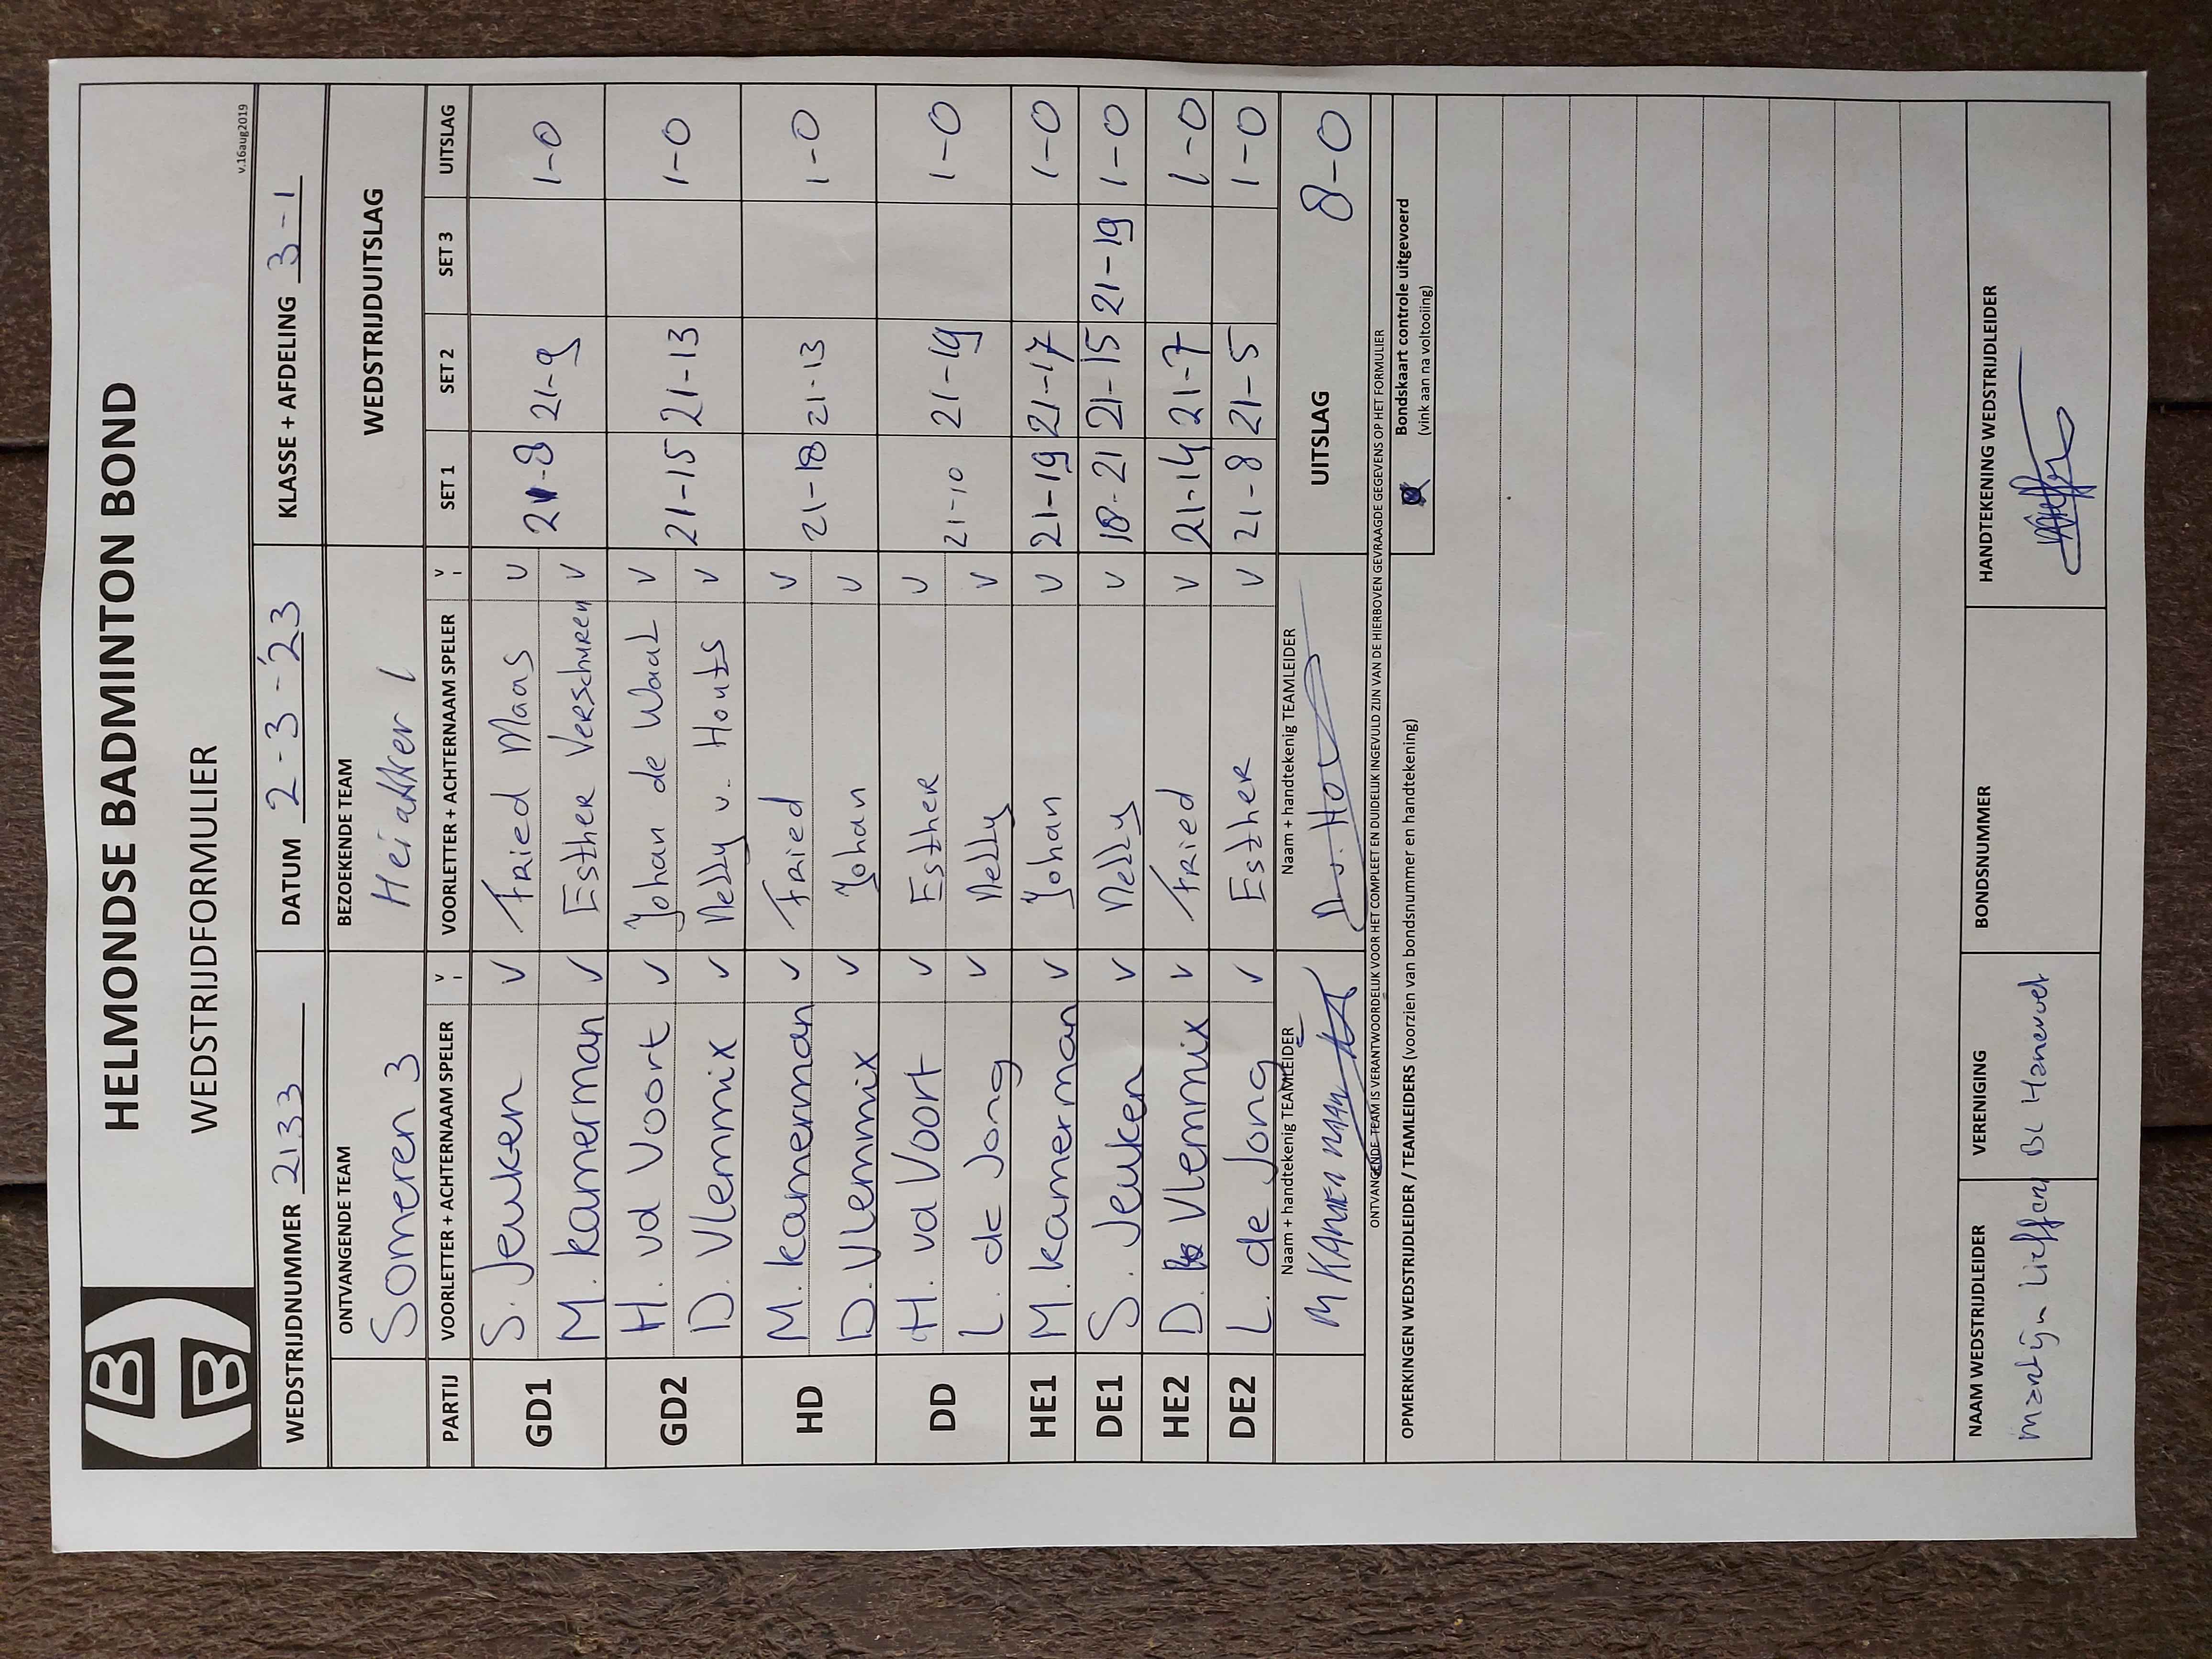 HELMONDSE BADMINTON BOND
WEDSTRIJDFORMULIER
v.16aug2019
WEDSTRIJDNUMMER 2133 DATUM 2-3-'23 KLASSE + AFDELING 3-1
ONTVANGENDE TEAM BEZOEKENDE TEAM WEDSTRIJDUITSLAG
Someren 3 Heiakker 1
PARTIJ VOORLETTER + ACHTERNAAM SPELER v BEZOEKENDE VOORLETTER + ACHTERNAAM SPELER v SET 1 SET 2 SET 3 UITSLAG
GD1 S. Jeuken v Fried Maas v 21-8 21-9 1-0
M. Kamerman v Esther Verschuren v
GD2 H. vd Voort v Johan de Waal v 21-15 21-13 1-0
D. Vlemmix v Nelly v. Houts v
HD M. Kamerman v Fried v 21-18 21-13 1-0
D. Vlemmix v Johan v
DD H. vd Voort v Esther v 21-10 21-19 1-0
L. de Jong v Nelly v
HE1 M. Kamerman v Johan v 21-19 21-17 1-0
DE1 S. Jeuken v Nelly v 18-21 21-15 21-19 1-0
HE2 D. Vlemmix v Fried v 21-14 21-7 1-0
DE2 L. de Jong v Esther v 21-8 21-5 1-0
Naam + handtekenig TEAMLEIDER Naam + handtekenig TEAMLEIDER UITSLAG 8-0
M KAMERMAN
ONTVANGENDE TEAM IS VERANTWOORDELIJK VOOR HET COMPLEET EN DUIDELIJK INGEVULD ZIJN VAN DE HIERBOVEN GEVRAAGDE GEGEVENS OP HET FORMULIER
OPMERKINGEN WEDSTRIJDLEIDER / TEAMLEIDERS (voorzien van bondsnummer en handtekening)
Bondskaart controle uitgevoerd
(vink aan na voltooiing)
NAAM WEDSTRIJDLEIDER VERENIGING BONDSNUMMER HANDTEKENING WEDSTRIJDLEIDER
Martijn BC Hanevoet